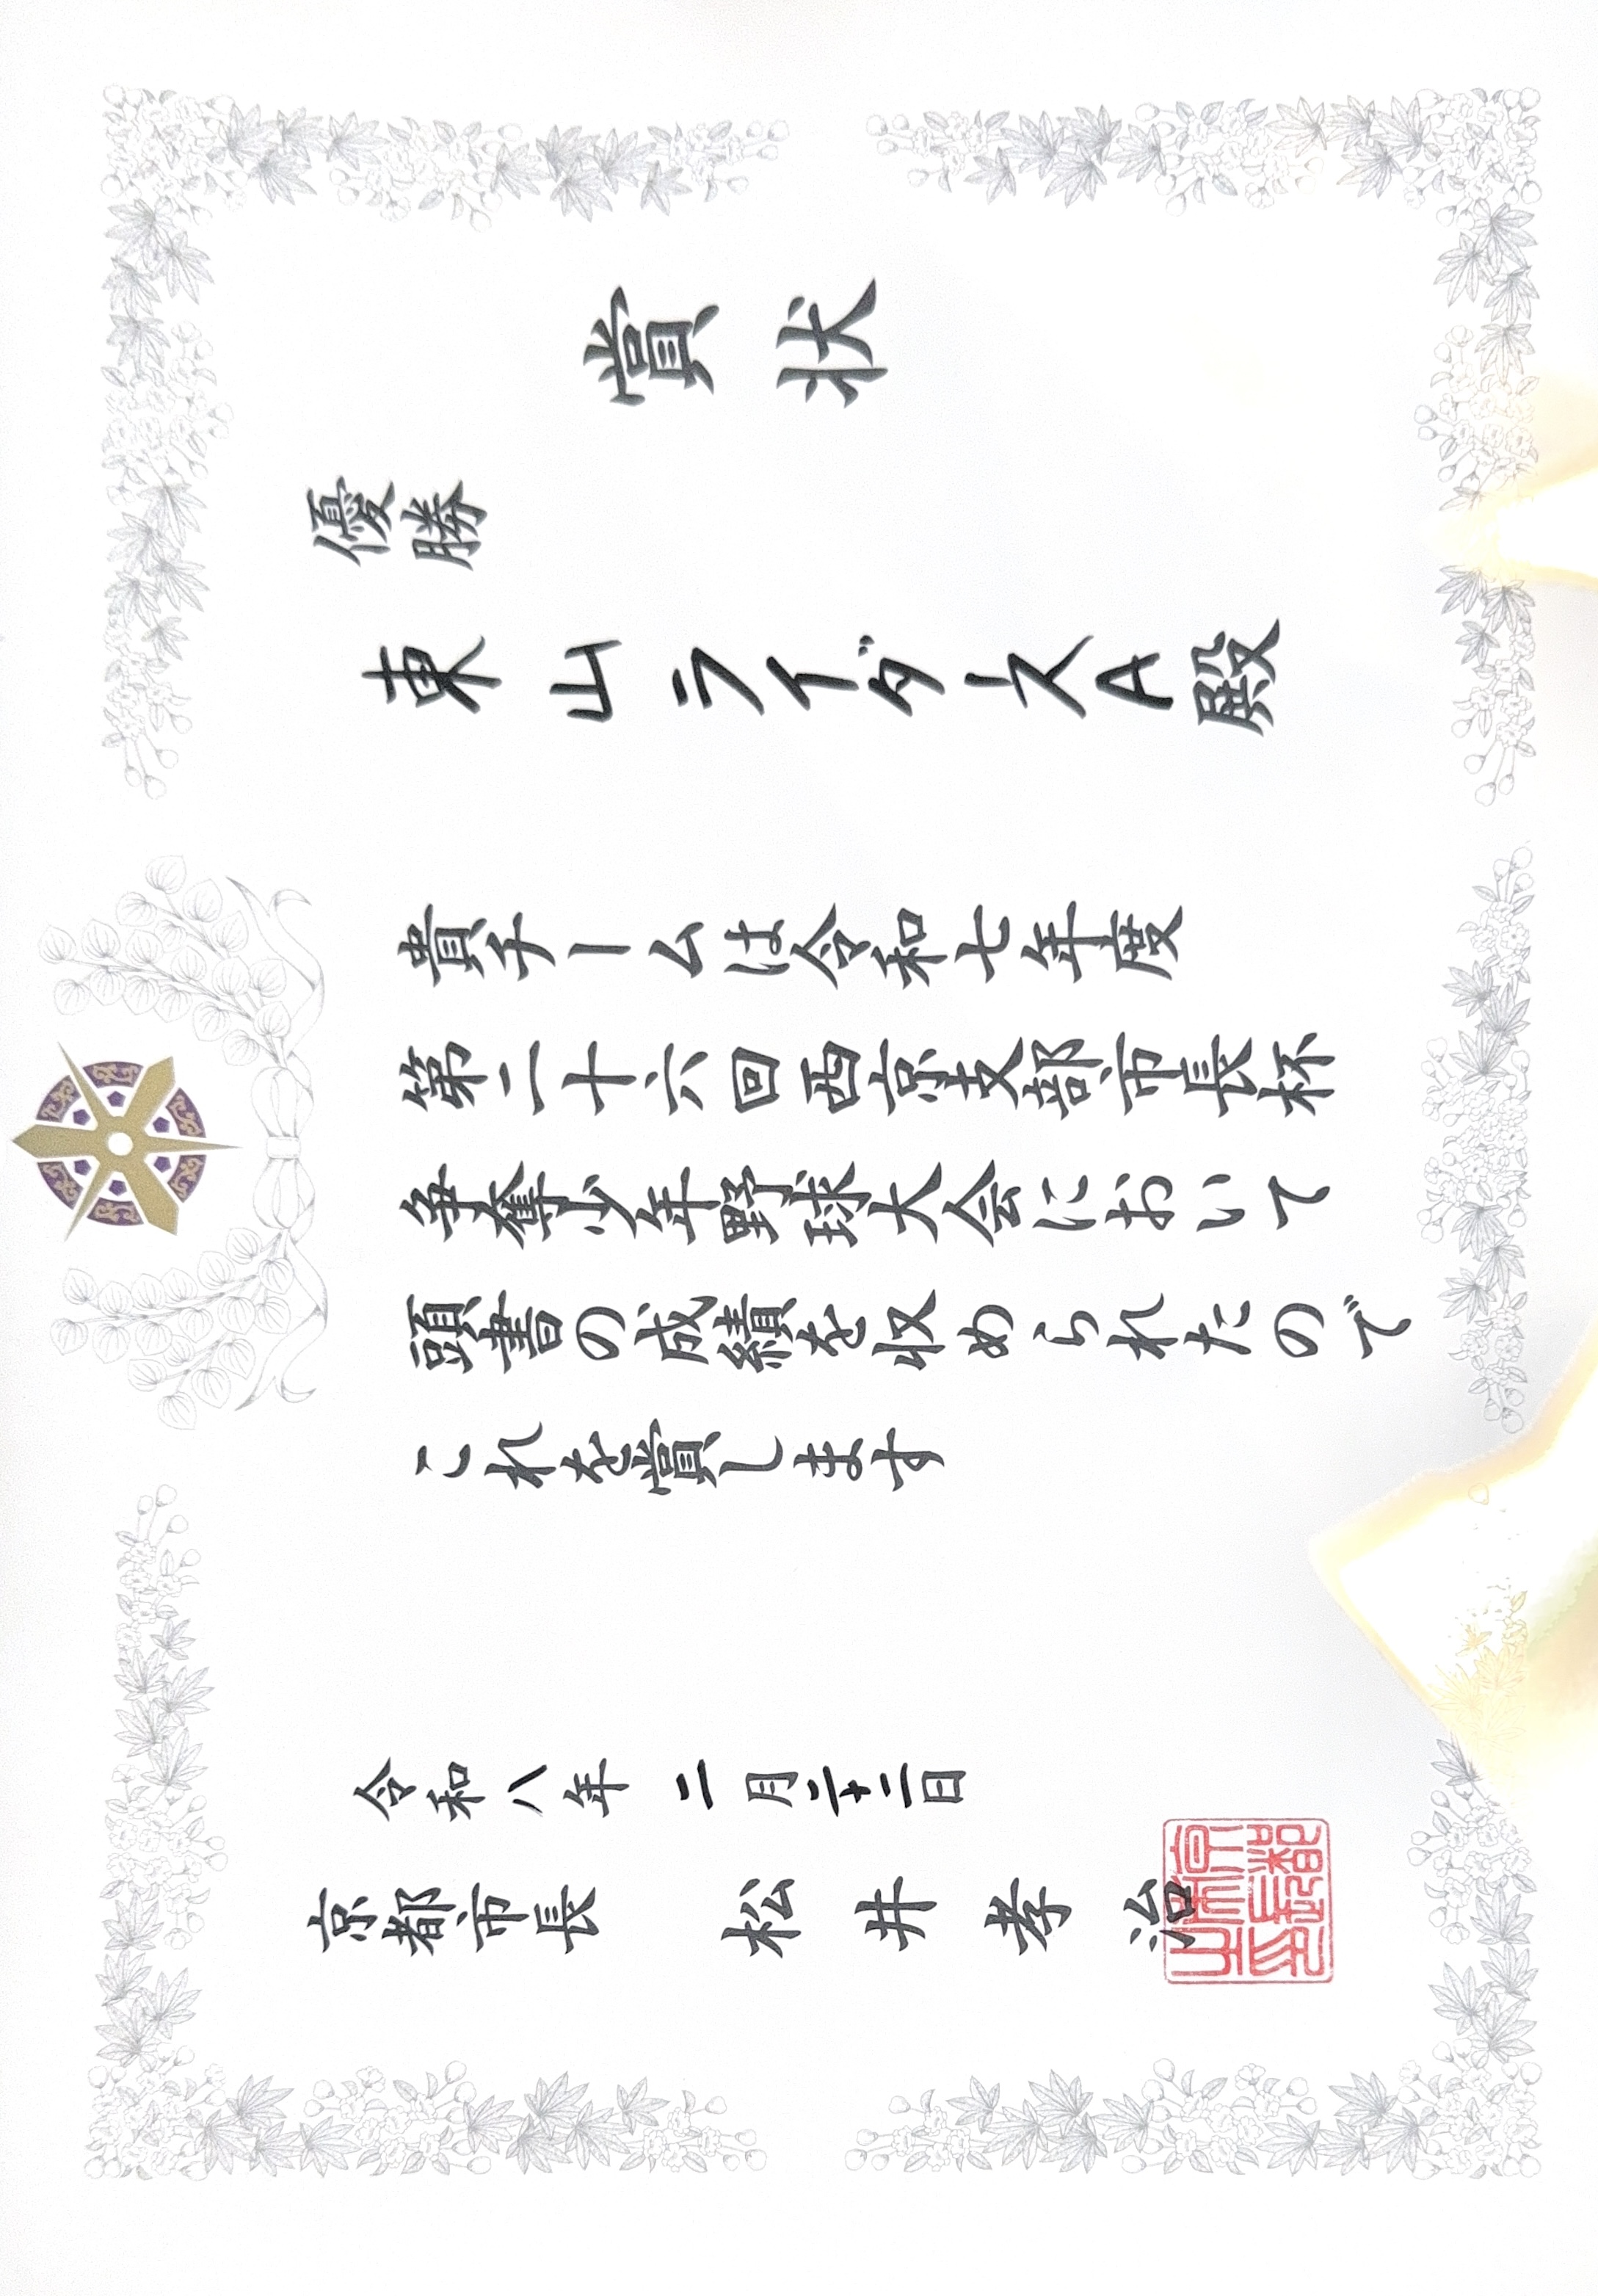 賞状
優勝
東山ライダースA殿
貴チームは令和七年度
第二十六回西京支部市長杯
争奪少年野球大会において
頭書の成績を収められたので
これを賞します
令和八年二月二十二日
京都市長 松井孝治